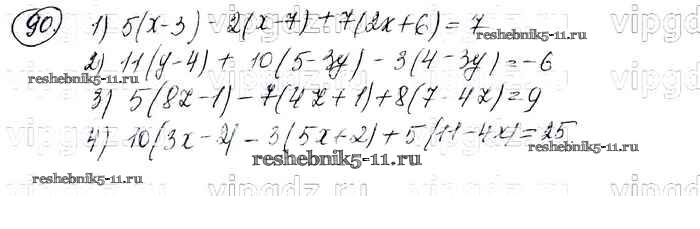 90. 1) 5(x-3) - 2(x-7) + 7(2x+6) = 7
2) 11(y-4) + 10(5-3y) - 3(4-3y) = -6
reshebnik5-11.ru
reshebnik5-11.ru
3) 5(8z-1) - 7(4z+1) + 8(7-4z) = 9
4) 10(3x-2) - 3(5x+2) + 5(11-4x) = 25
reshebnik5-11.ru
reshebnik5-11.ru
reshebnik5-11.ru